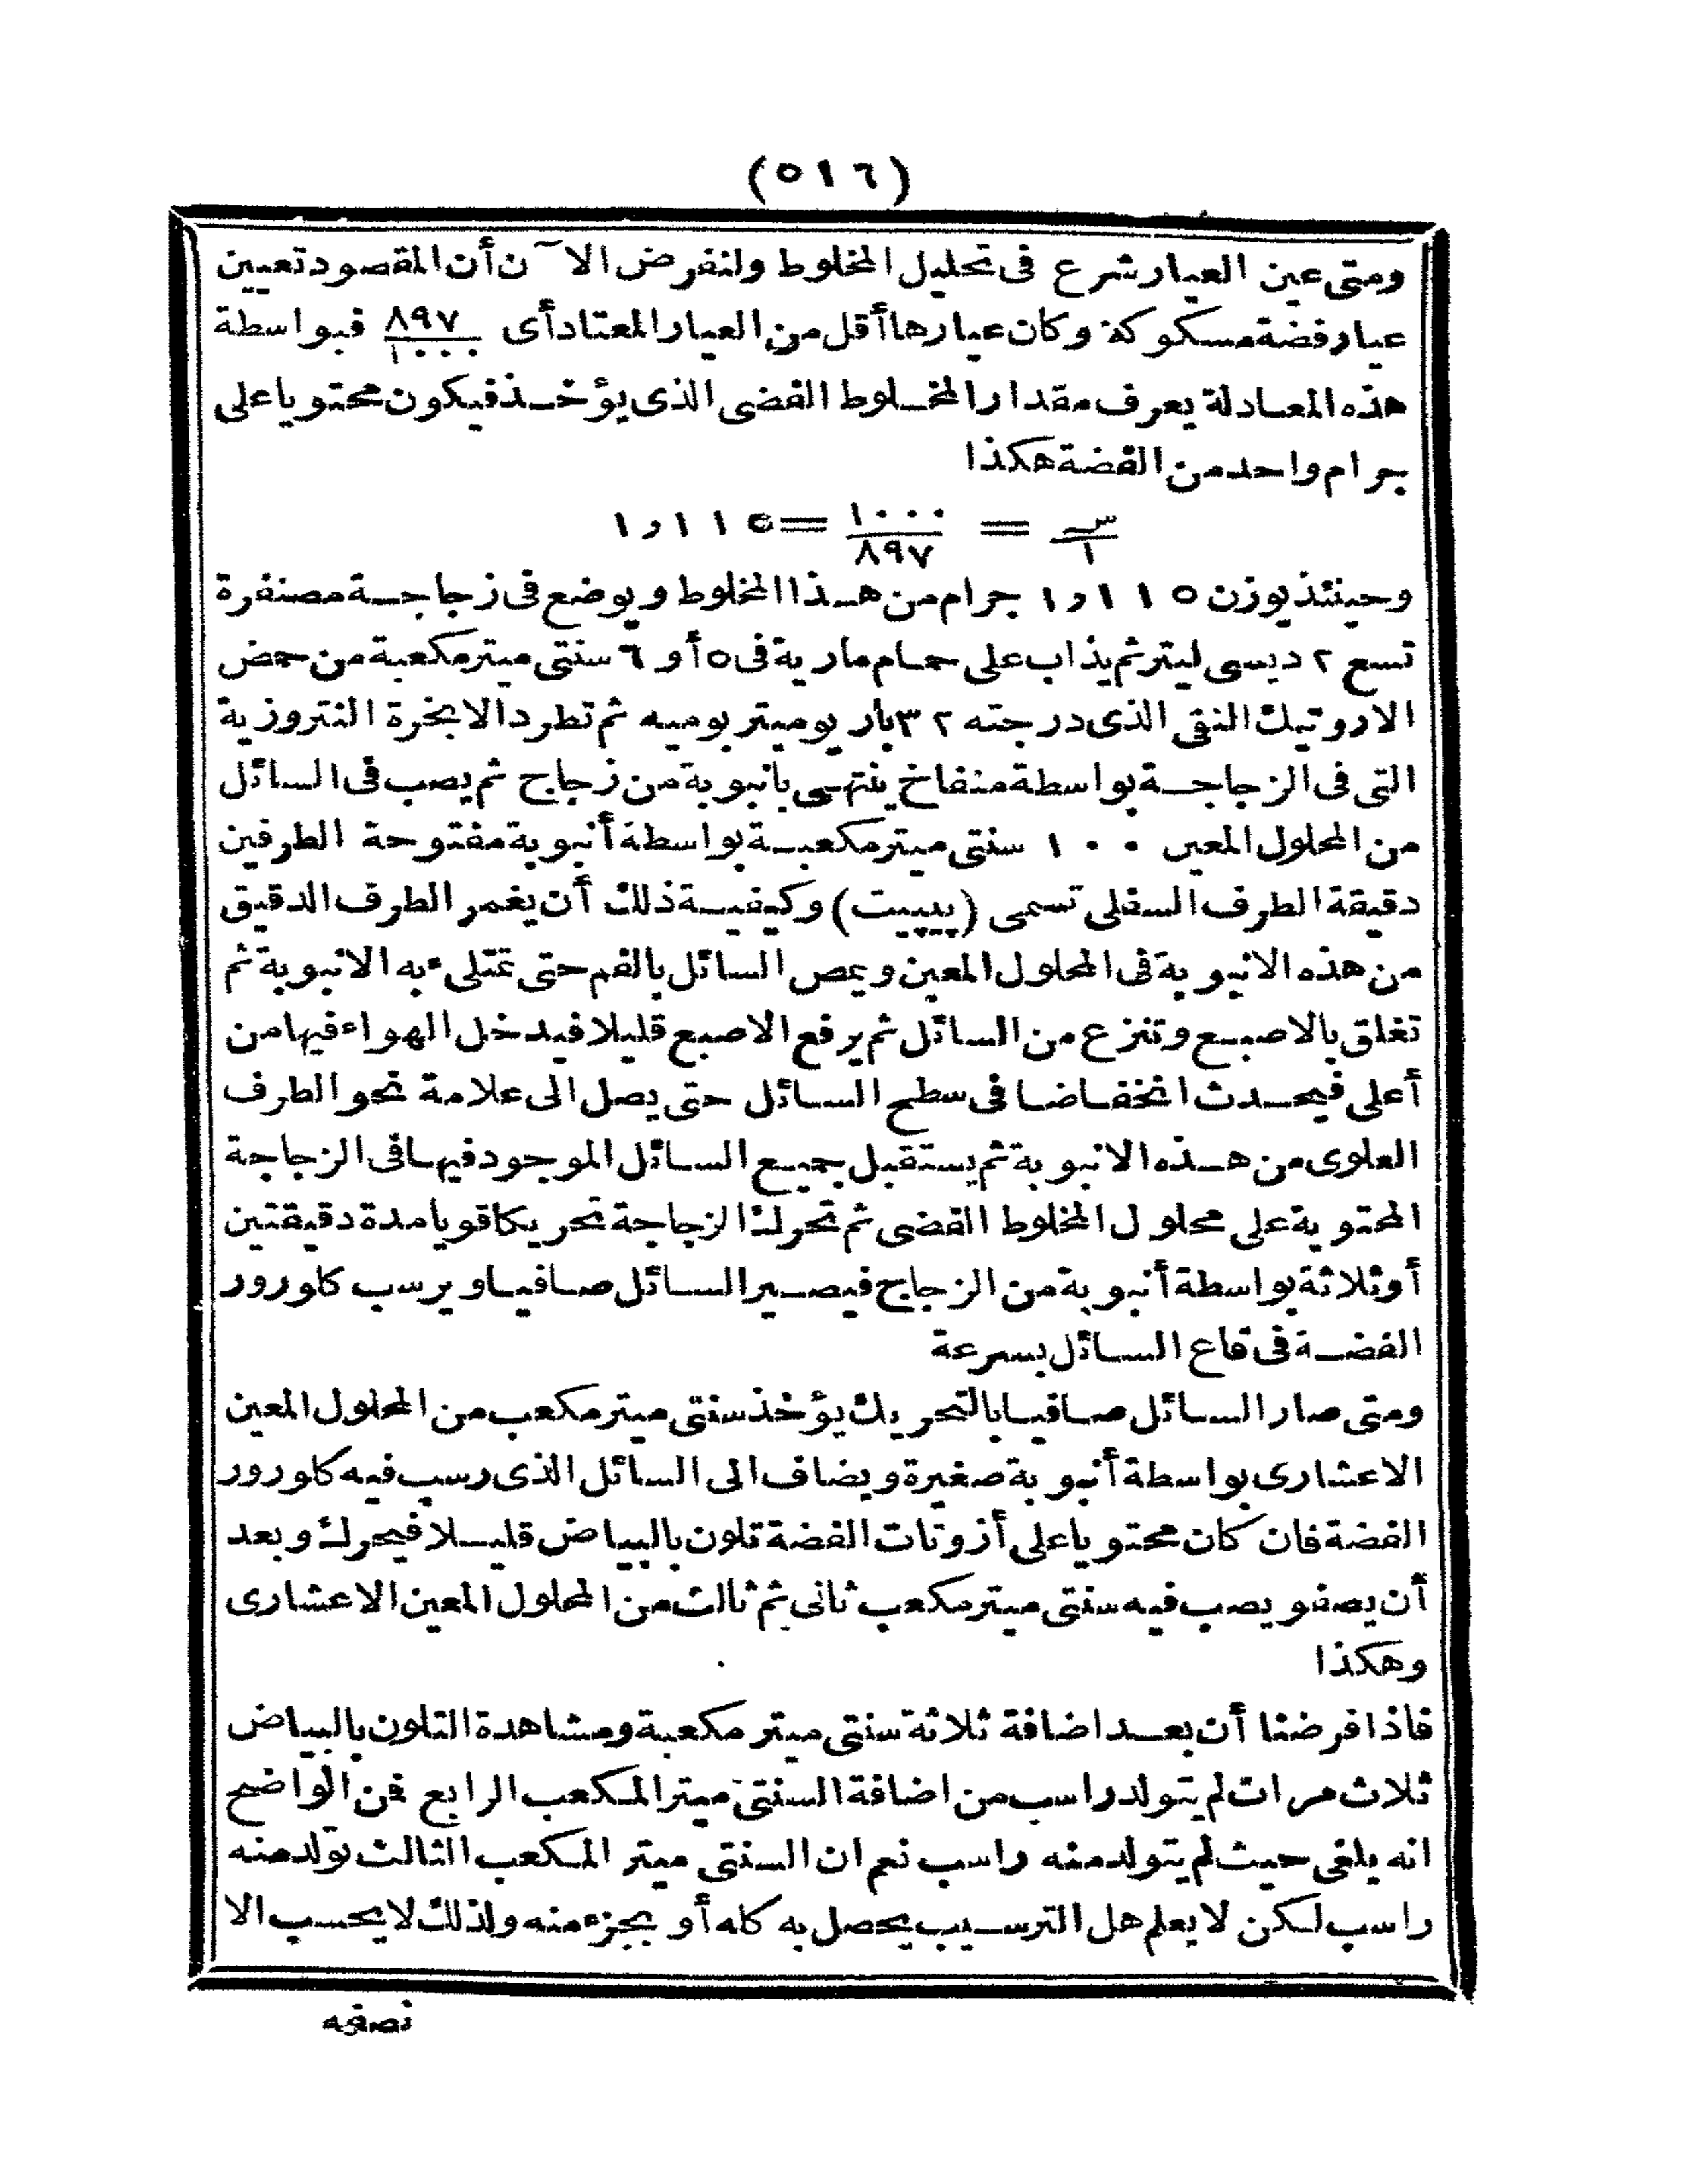 (٥١٦)
ومتى عين العيار شرع فى تحليل المخلوط ولنفرض الآن أن المقصود تعيين
عيار فضة مسكوكة وكان عيارها أقل من العيار المعتاد أى ٨٩٧/١٠٠٠ فبواسطة
هذه المعادلة يعرف مقدار المخلوط الفضى الذى يؤخذ فيكون محتويا على
جرام واحد من الفضة هكذا
س/١ = ١٠٠٠/٨٩٧ = ١١٥و١
وحينئذ يوزن ١١٥و١ جرام من هذا المخلوط ويوضع فى زجاجة مصنفرة
تسع ٢ ديسى ليتر ثم يذاب على حمام مارية فى ٥ أو ٦ سنتى ميتر مكعبة من حمض
الازوتيك النقى الذى درجته ٣٢ بأريوميتر بوميه ثم تطرد الابخرة النتروزية
التى فى الزجاجة بواسطة منفاخ ينتهى بانبوبة من زجاج ثم يصب فى السائل
من المحلول المعين ١٠٠ سنتى ميتر مكعبة بواسطة أنبوبة مفتوحة الطرفين
دقيقة الطرف السفلى تسمى (پيپيت) وكيفية ذلك أن يغمر الطرف الدقيق
من هذه الانبوبة فى المحلول المعين ويمص السائل بالفم حتى تمتلىء به الانبوبة ثم
تغلق بالاصبع وتنزع من السائل ثم يرفع الاصبع قليلا فيدخل الهواء فيها من
أعلى فيحدث انخفاضا فى سطح السائل حتى يصل الى علامة نحو الطرف
العلوى من هذه الانبوبة ثم يستقبل جميع السائل الموجود فيها فى الزجاجة
المحتوية على محلول المخلوط الفضى ثم تحرك الزجاجة تحريكا قويا مدة دقيقتين
أو ثلاثة بواسطة أنبوبة من الزجاج فيصير السائل صافيا ويرسب كلورور
الفضة فى قاع السائل بسرعة
ومتى صار السائل صافيا بالتحريك يؤخذ سنتى ميتر مكعب من المحلول المعين
الاعشارى بواسطة أنبوبة صغيرة ويضاف الى السائل الذى رسب فيه كلورور
الفضة فان كان محتويا على أزوتات الفضة تلون بالبياض قليلا فيحرك وبعد
أن يصفو يصب فيه سنتى ميتر مكعب ثانى ثم ثالث من المحلول المعين الاعشارى
وهكذا
فاذا فرضنا أن بعد اضافة ثلاثة سنتى ميتر مكعبة ومشاهدة التلون بالبياض
ثلاث مرات لم يتولد راسب من اضافة السنتى ميتر المكعب الرابع فمن الواضح
انه يلغى حيث لم يتولد منه راسب نعم ان السنتى ميتر المكعب الثالث تولد منه
راسب لكن لا يعلم هل الترسيب يحصل به كله أو بجزء منه ولذلك لا يحسب الا
نصفه